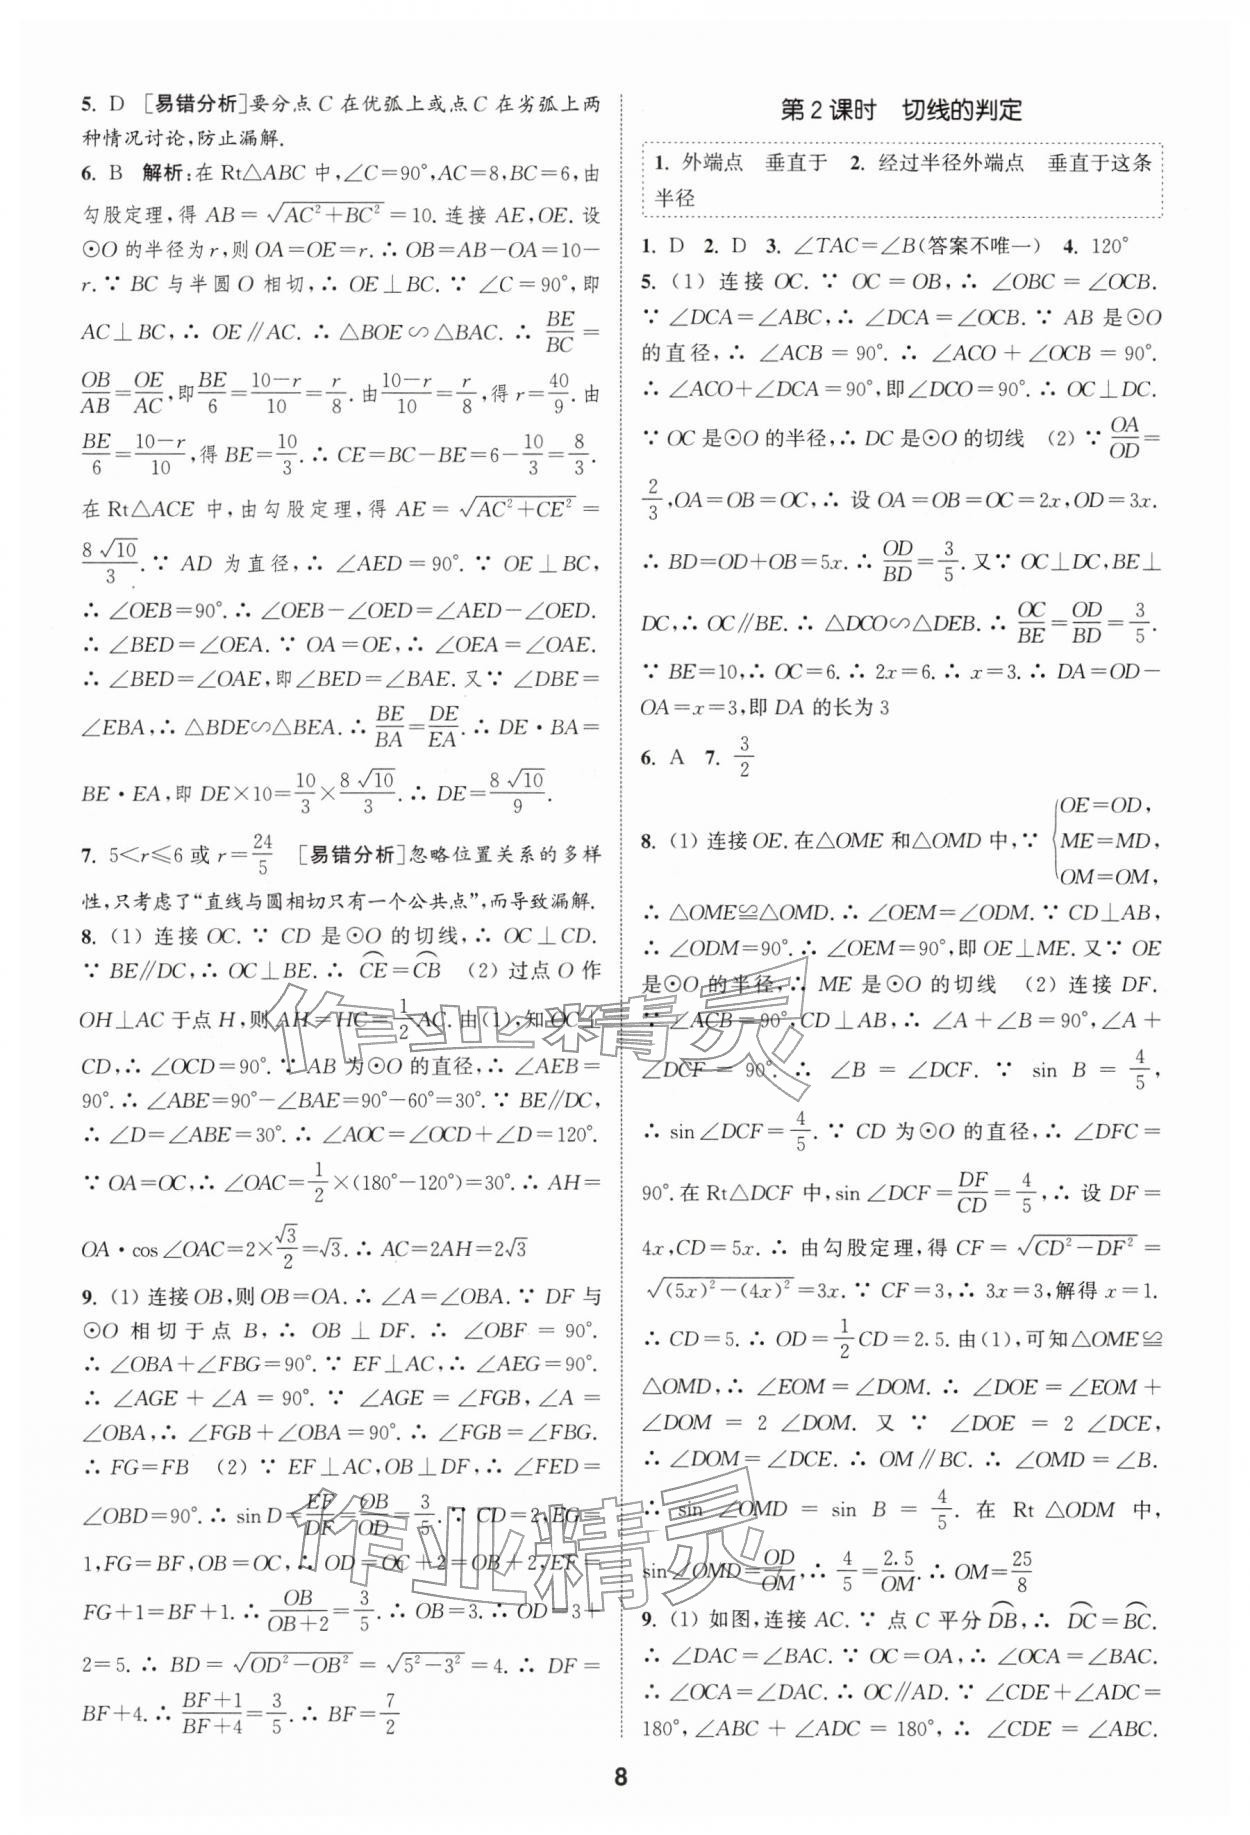 5. D [易错分析]要分点 C 在优弧上或点 C 在劣弧上两
种情况讨论,防止漏解.
6. B 解析:在 Rt△ABC 中,∠C=90°,AC=8,BC=6,由
勾股定理,得 AB=√(AC²+BC²)=10. 连接 AE,OE. 设
⊙O 的半径为 r,则 OA=OE=r.∴ OB=AB-OA=10-
r.∵ BC 与半圆 O 相切,∴ OE⊥BC.∵ ∠C=90°,即
AC⊥BC,∴ OE∥AC.∴ △BOE∽△BAC.∴ BE/BC=
OB/AB=OE/AC,即BE/6=(10-r)/10=r/8.由(10-r)/10=r/8,得 r=40/9.由
BE/6=(10-r)/10,得 BE=10/3.∴ CE=BC-BE=6-10/3=8/3.
在 Rt△ACE 中,由勾股定理,得 AE=√(AC²+CE²)=
8√10/3.∵ AD 为直径,∴ ∠AED=90°.∵ OE⊥BC,
∴ ∠OEB=90°.∴ ∠OEB-∠OED=∠AED-∠OED.
∴ ∠BED=∠OEA.∵ OA=OE,∴ ∠OEA=∠OAE.
∴ ∠BED=∠OAE,即∠BED=∠BAE.又∵ ∠DBE=
∠EBA,∴ △BDE∽△BEA.∴ BE/BA=DE/EA.∴ DE·BA=
BE·EA,即 DE×10=10/3×8√10/3.∴ DE=8√10/9.
7. 5<r≤6 或 r=24/5 [易错分析]忽略位置关系的多样
性,只考虑了“直线与圆相切只有一个公共点”,而导致漏解.
8. (1) 连接 OC.∵ CD 是⊙O 的切线,∴ OC⊥CD.
∵ BE∥DC,∴ OC⊥BE.∴ ⌒CE=⌒CB (2) 过点 O 作
OH⊥AC 于点 H,则 AH=HC=1/2AC.由(1),知 OC⊥
CD,∴ ∠OCD=90°.∵ AB 为⊙O 的直径,∴ ∠AEB=
90°.∴ ∠ABE=90°-∠BAE=90°-60°=30°.∵ BE∥DC,
∴ ∠D=∠ABE=30°.∴ ∠AOC=∠OCD+∠D=120°.
∵ OA=OC,∴ ∠OAC=1/2×(180°-120°)=30°.∴ AH=
OA·cos∠OAC=2×√3/2=√3.∴ AC=2AH=2√3
9. (1) 连接 OB,则 OB=OA.∴ ∠A=∠OBA.∵ DF 与
⊙O 相切于点 B,∴ OB⊥DF.∴ ∠OBF=90°.
∴ ∠OBA+∠FBG=90°.∵ EF⊥AC,∴ ∠AEG=90°.
∴ ∠AGE+∠A=90°.∵ ∠AGE=∠FGB,∠A=
∠OBA,∴ ∠FGB+∠OBA=90°.∴ ∠FGB=∠FBG.
∴ FG=FB (2) ∵ EF⊥AC,OB⊥DF,∴ ∠FED=
∠OBD=90°.∴ sin D=EF/DF=OB/OD=3/5.∵ CD=2,EG=
1,FG=BF,OB=OC,∴ OD=OC+2=OB+2,EF=
FG+1=BF+1.∴ OB/(OB+2)=3/5.∴ OB=3.∴ OD=3+
2=5.∴ BD=√(OD²-OB²)=√(5²-3²)=4.∴ DF=
BF+4.∴ (BF+1)/(BF+4)=3/5.∴ BF=7/2
第 2 课时 切线的判定
1. 外端点 垂直于 2. 经过半径外端点 垂直于这条
半径
1. D 2. D 3. ∠TAC=∠B(答案不唯一) 4. 120°
5. (1) 连接 OC.∵ OC=OB,∴ ∠OBC=∠OCB.
∵ ∠DCA=∠ABC,∴ ∠DCA=∠OCB.∵ AB 是⊙O
的直径,∴ ∠ACB=90°.∴ ∠ACO+∠OCB=90°.
∴ ∠ACO+∠DCA=90°,即∠DCO=90°.∴ OC⊥DC.
∵ OC 是⊙O 的半径,∴ DC 是⊙O 的切线 (2) ∵ OA/OD=
2/3,OA=OB=OC,∴ 设 OA=OB=OC=2x,OD=3x.
∴ BD=OD+OB=5x.∴ OD/BD=3/5.又∵ OC⊥DC,BE⊥
DC,∴ OC∥BE.∴ △DCO∽△DEB.∴ OC/BE=OD/BD=3/5.
∵ BE=10,∴ OC=6.∴ 2x=6.∴ x=3.∴ DA=OD-
OA=x=3,即 DA 的长为 3
6. A 7. 3/2
8. (1) 连接 OE.在△OME 和△OMD 中,∵ {OE=OD,
ME=MD,
OM=OM,
∴ △OME≌△OMD.∴ ∠OEM=∠ODM.∵ CD⊥AB,
∴ ∠ODM=90°.∴ ∠OEM=90°,即 OE⊥ME.又∵ OE
是⊙O 的半径,∴ ME 是⊙O 的切线 (2) 连接 DF.
∵ ∠ACB=90°,CD⊥AB,∴ ∠A+∠B=90°,∠A+
∠DCF=90°.∴ ∠B=∠DCF.∵ sin B=4/5,
∴ sin∠DCF=4/5.∵ CD 为⊙O 的直径,∴ ∠DFC=
90°.在 Rt△DCF 中,sin∠DCF=DF/CD=4/5,∴ 设 DF=
4x,CD=5x.∴ 由勾股定理,得 CF=√(CD²-DF²)=
√((5x)²-(4x)²)=3x.∵ CF=3,∴ 3x=3,解得 x=1.
∴ CD=5.∴ OD=1/2CD=2.5.由(1),可知△OME≌
△OMD,∴ ∠EOM=∠DOM.∴ ∠DOE=∠EOM+
∠DOM=2∠DOM.又∵ ∠DOE=2∠DCE,
∴ ∠DOM=∠DCE.∴ OM∥BC.∴ ∠OMD=∠B.
∴ sin∠OMD=sin B=4/5.在 Rt△ODM 中,
sin∠OMD=OD/OM,∴ 4/5=2.5/OM.∴ OM=25/8
9. (1) 如图,连接 AC.∵ 点 C 平分⌒DB,∴ ⌒DC=⌒BC.
∴ ∠DAC=∠BAC.∵ OC=OA,∴ ∠OCA=∠BAC.
∴ ∠OCA=∠DAC.∴ OC∥AD.∵ ∠CDE+∠ADC=
180°,∠ABC+∠ADC=180°,∴ ∠CDE=∠ABC.
8
作业精灵
作业精灵